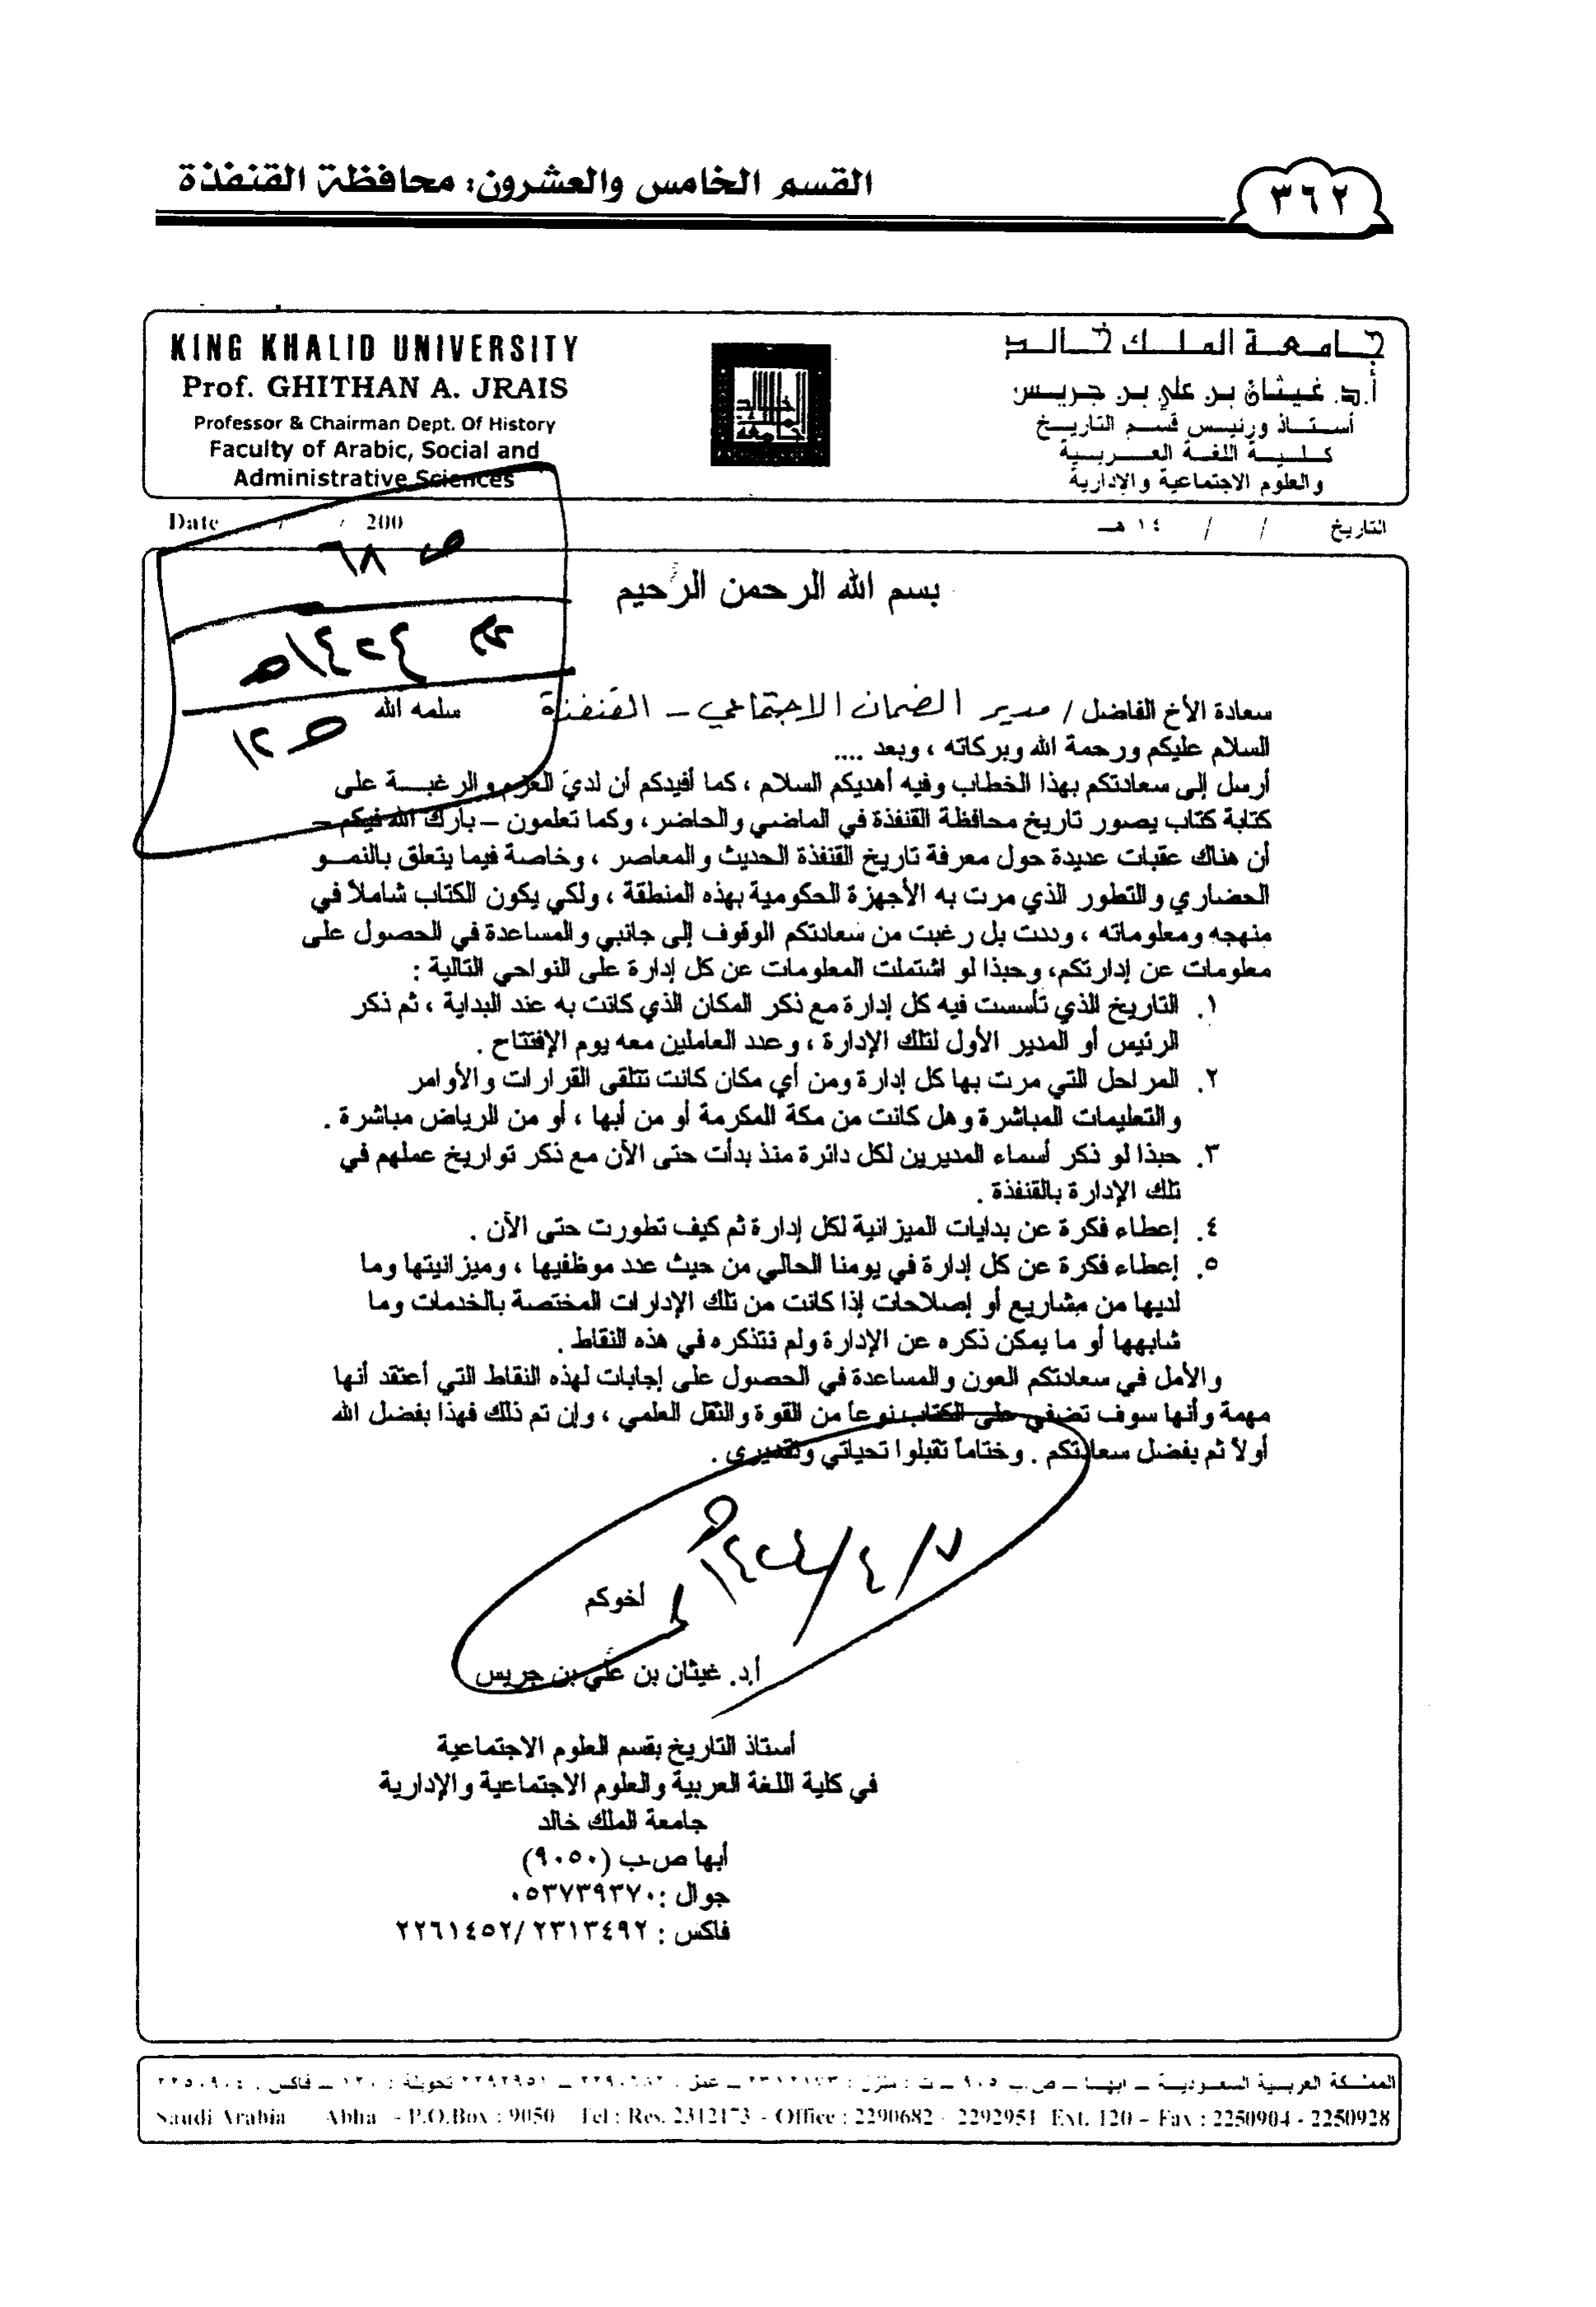 ٣٦٢
القسم الخامس والعشرون: محافظة القنفذة
KING KHALID UNIVERSITY
Prof. GHITHAN A. JRAIS
Professor & Chairman Dept. Of History
Faculty of Arabic, Social and
Administrative Sciences
جامعة الملك خالد
أ.د. غيثان بن علي بن جريس
أستاذ ورئيس قسم التاريخ
كلية اللغة العربية
والعلوم الاجتماعية والإدارية
Date / / 200
التاريخ / / ١٤ هـ
ص ٦٨
١٤٢٤هـ
ص ١٢
بسم الله الرحمن الرحيم
سعادة الأخ الفاضل / مدير الضمان الاجتماعي – القنفذة سلمه الله
السلام عليكم ورحمة الله وبركاته ، وبعد ....
أرسل إلى سعادتكم بهذا الخطاب وفيه أهديكم السلام ، كما أفيدكم أن لديَ العزم والرغبة على
كتابة كتاب يصور تاريخ محافظة القنفذة في الماضي والحاضر، وكما تعلمون – بارك الله فيكم –
أن هناك عقبات عديدة حول معرفة تاريخ القنفذة الحديث والمعاصر ، وخاصة فيما يتعلق بالنمو
الحضاري والتطور الذي مرت به الأجهزة الحكومية بهذه المنطقة ، ولكي يكون الكتاب شاملاً في
منهجه ومعلوماته ، وددت بل رغبت من سعادتكم الوقوف إلى جانبي والمساعدة في الحصول على
معلومات عن إدارتكم، وحبذا لو اشتملت المعلومات عن كل إدارة على النواحي التالية :
١. التاريخ الذي تأسست فيه كل إدارة مع ذكر المكان الذي كانت به عند البداية ، ثم ذكر
الرئيس أو المدير الأول لتلك الإدارة ، وعدد العاملين معه يوم الإفتتاح .
٢. المراحل التي مرت بها كل إدارة ومن أي مكان كانت تتلقى القرارات والأوامر
والتعليمات المباشرة وهل كانت من مكة المكرمة أو من أبها ، أو من الرياض مباشرة .
٣. حبذا لو ذكر أسماء المديرين لكل دائرة منذ بدأت حتى الآن مع ذكر تواريخ عملهم في
تلك الإدارة بالقنفذة .
٤. إعطاء فكرة عن بدايات الميزانية لكل إدارة ثم كيف تطورت حتى الآن .
٥. إعطاء فكرة عن كل إدارة في يومنا الحالي من حيث عدد موظفيها ، وميزانيتها وما
لديها من مشاريع أو إصلاحات إذا كانت من تلك الإدارات المختصة بالخدمات وما
شابهها أو ما يمكن ذكره عن الإدارة ولم نتذكره في هذه النقاط .
والأمل في سعادتكم العون والمساعدة في الحصول على إجابات لهذه النقاط التي أعتقد أنها
مهمة وأنها سوف تضفي على الكتاب نوعاً من القوة والثقل العلمي ، وإن تم ذلك فهذا بفضل الله
أولاً ثم بفضل سعادتكم . وختاماً تقبلوا تحياتي وتقديري .
٧/٤/١٤٢٤هـ
أخوكم
أ.د. غيثان بن علي بن جريس
أستاذ التاريخ بقسم العلوم الاجتماعية
في كلية اللغة العربية والعلوم الاجتماعية والإدارية
جامعة الملك خالد
أبها ص.ب (٩٠٥٠)
جوال :٠٥٣٧٣٩٣٧٠
فاكس : ٢٣١٣٤٩٢/٢٢٦١٤٥٢
المملكة العربية السعودية – ابها – ص.ب – ت : منزل : ٢٣١٢١٧٣ – عمل – ٢٢٩٢٩٥١ تحويلة : ١٢٠ – فاكس
Saudi Arabia Abha - P.O.Box : 9050 Tel : Res. 2312173 - Office : 2290682 - 2292951 Ext. 120 – Fax : 2250904 - 2250928